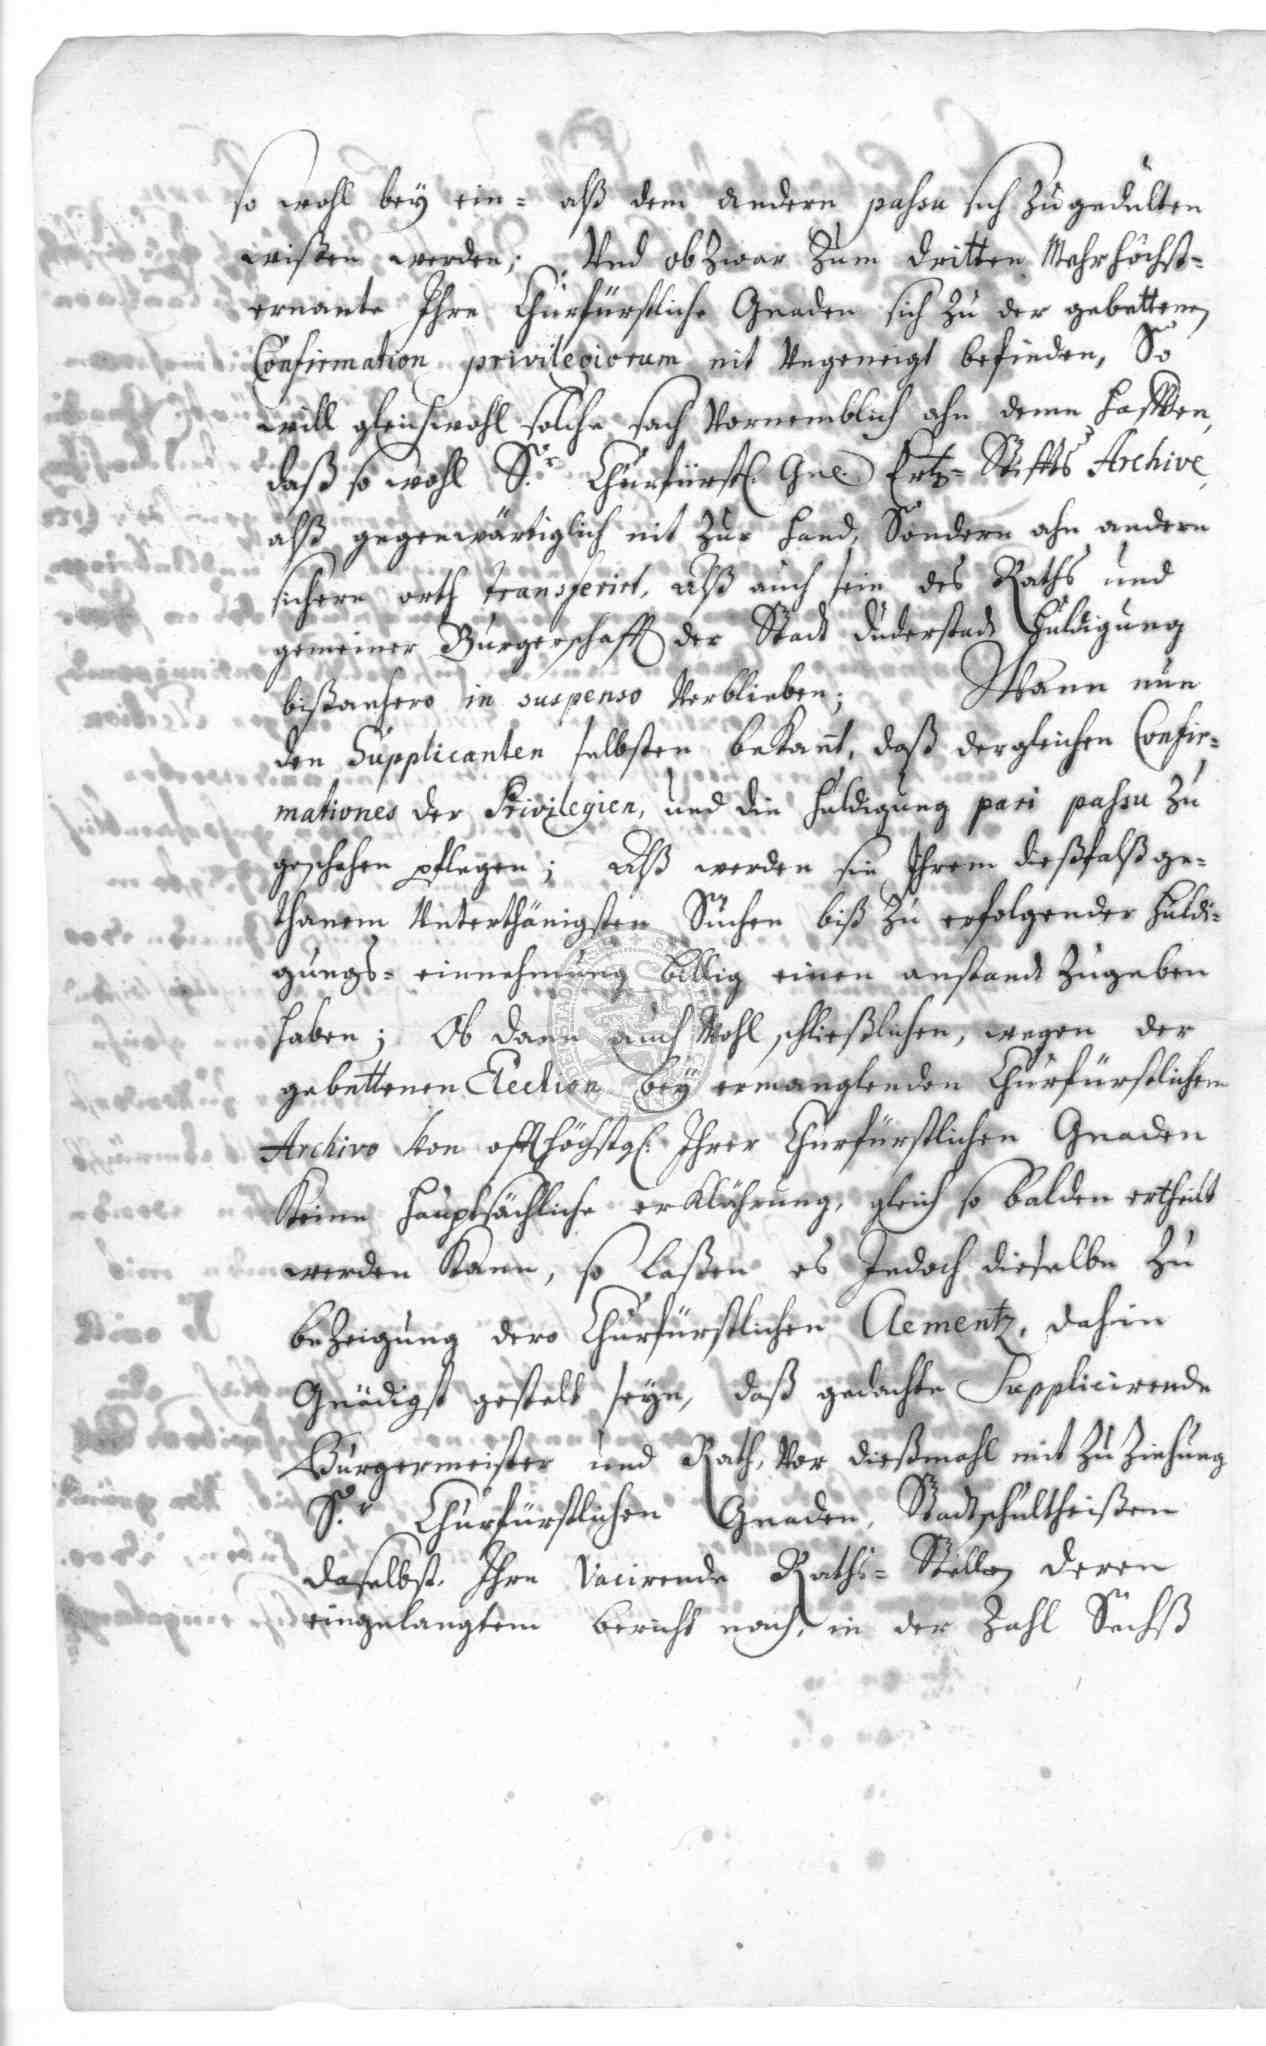 so wohl beÿ ein= alß dem andern passu sich zugedulten
wißen werden; Und ob zwar zum dritten Mehrhöchst=
ernante Ihre Churfürstliche Gnaden sich zu der gebettenen
Confirmation privilegiorum nit ungeneigt befinden, So
will gleichwohl solche sach vornemblich ahn deme hafften,
daß so wohl Sr. Churfürstl. Gn. Ertz=Stiffts Archive,
alß gegenwärtiglich nit zur hand, Sondern ahn andern
sichern orth transferirt, alß auch sein des Raths und
gemeiner Burgerschafft der Stadt duderstadt Huldigung
bißanhero in suspenso verblieben; Wann nun
den Supplicanten selbsten bekant, daß dergleichen Confir=
mationes der Privilegien, und die huldigung pari passu zu
geschehen pflegen; Alß werden sie Ihrem dießfalß ge=
thanem unterthänigsten Suchen biß zu erfolgender huldi=
gungs=einnehmung billig einen anstandt zugeben
haben; Ob dann auch wohl schließlichen, wegen der
gebettenen Election beÿ ermanglenden Churfürstlichem
Archivo von offthöchstgl. Ihrer Churfürstlichen Gnaden
Keine hauptsächliche erklährung, gleich so balden ertheilt
werden kann, so laßen es Jedoch dieselbe zu
bezeigung dero Churfürstlichen Clementz, dahin
Gnädigst gestelt seyn, daß gedachte Supplicirende
Burgermeister und Rath, vor dießmahl mit zuziehung
Sr. Churfürstlichen Gnaden, Stadtschultheißen
daselbst, Ihre vacirende Raths=Stellen deren
eingelangtem bericht nach, in der Zahl Sechß